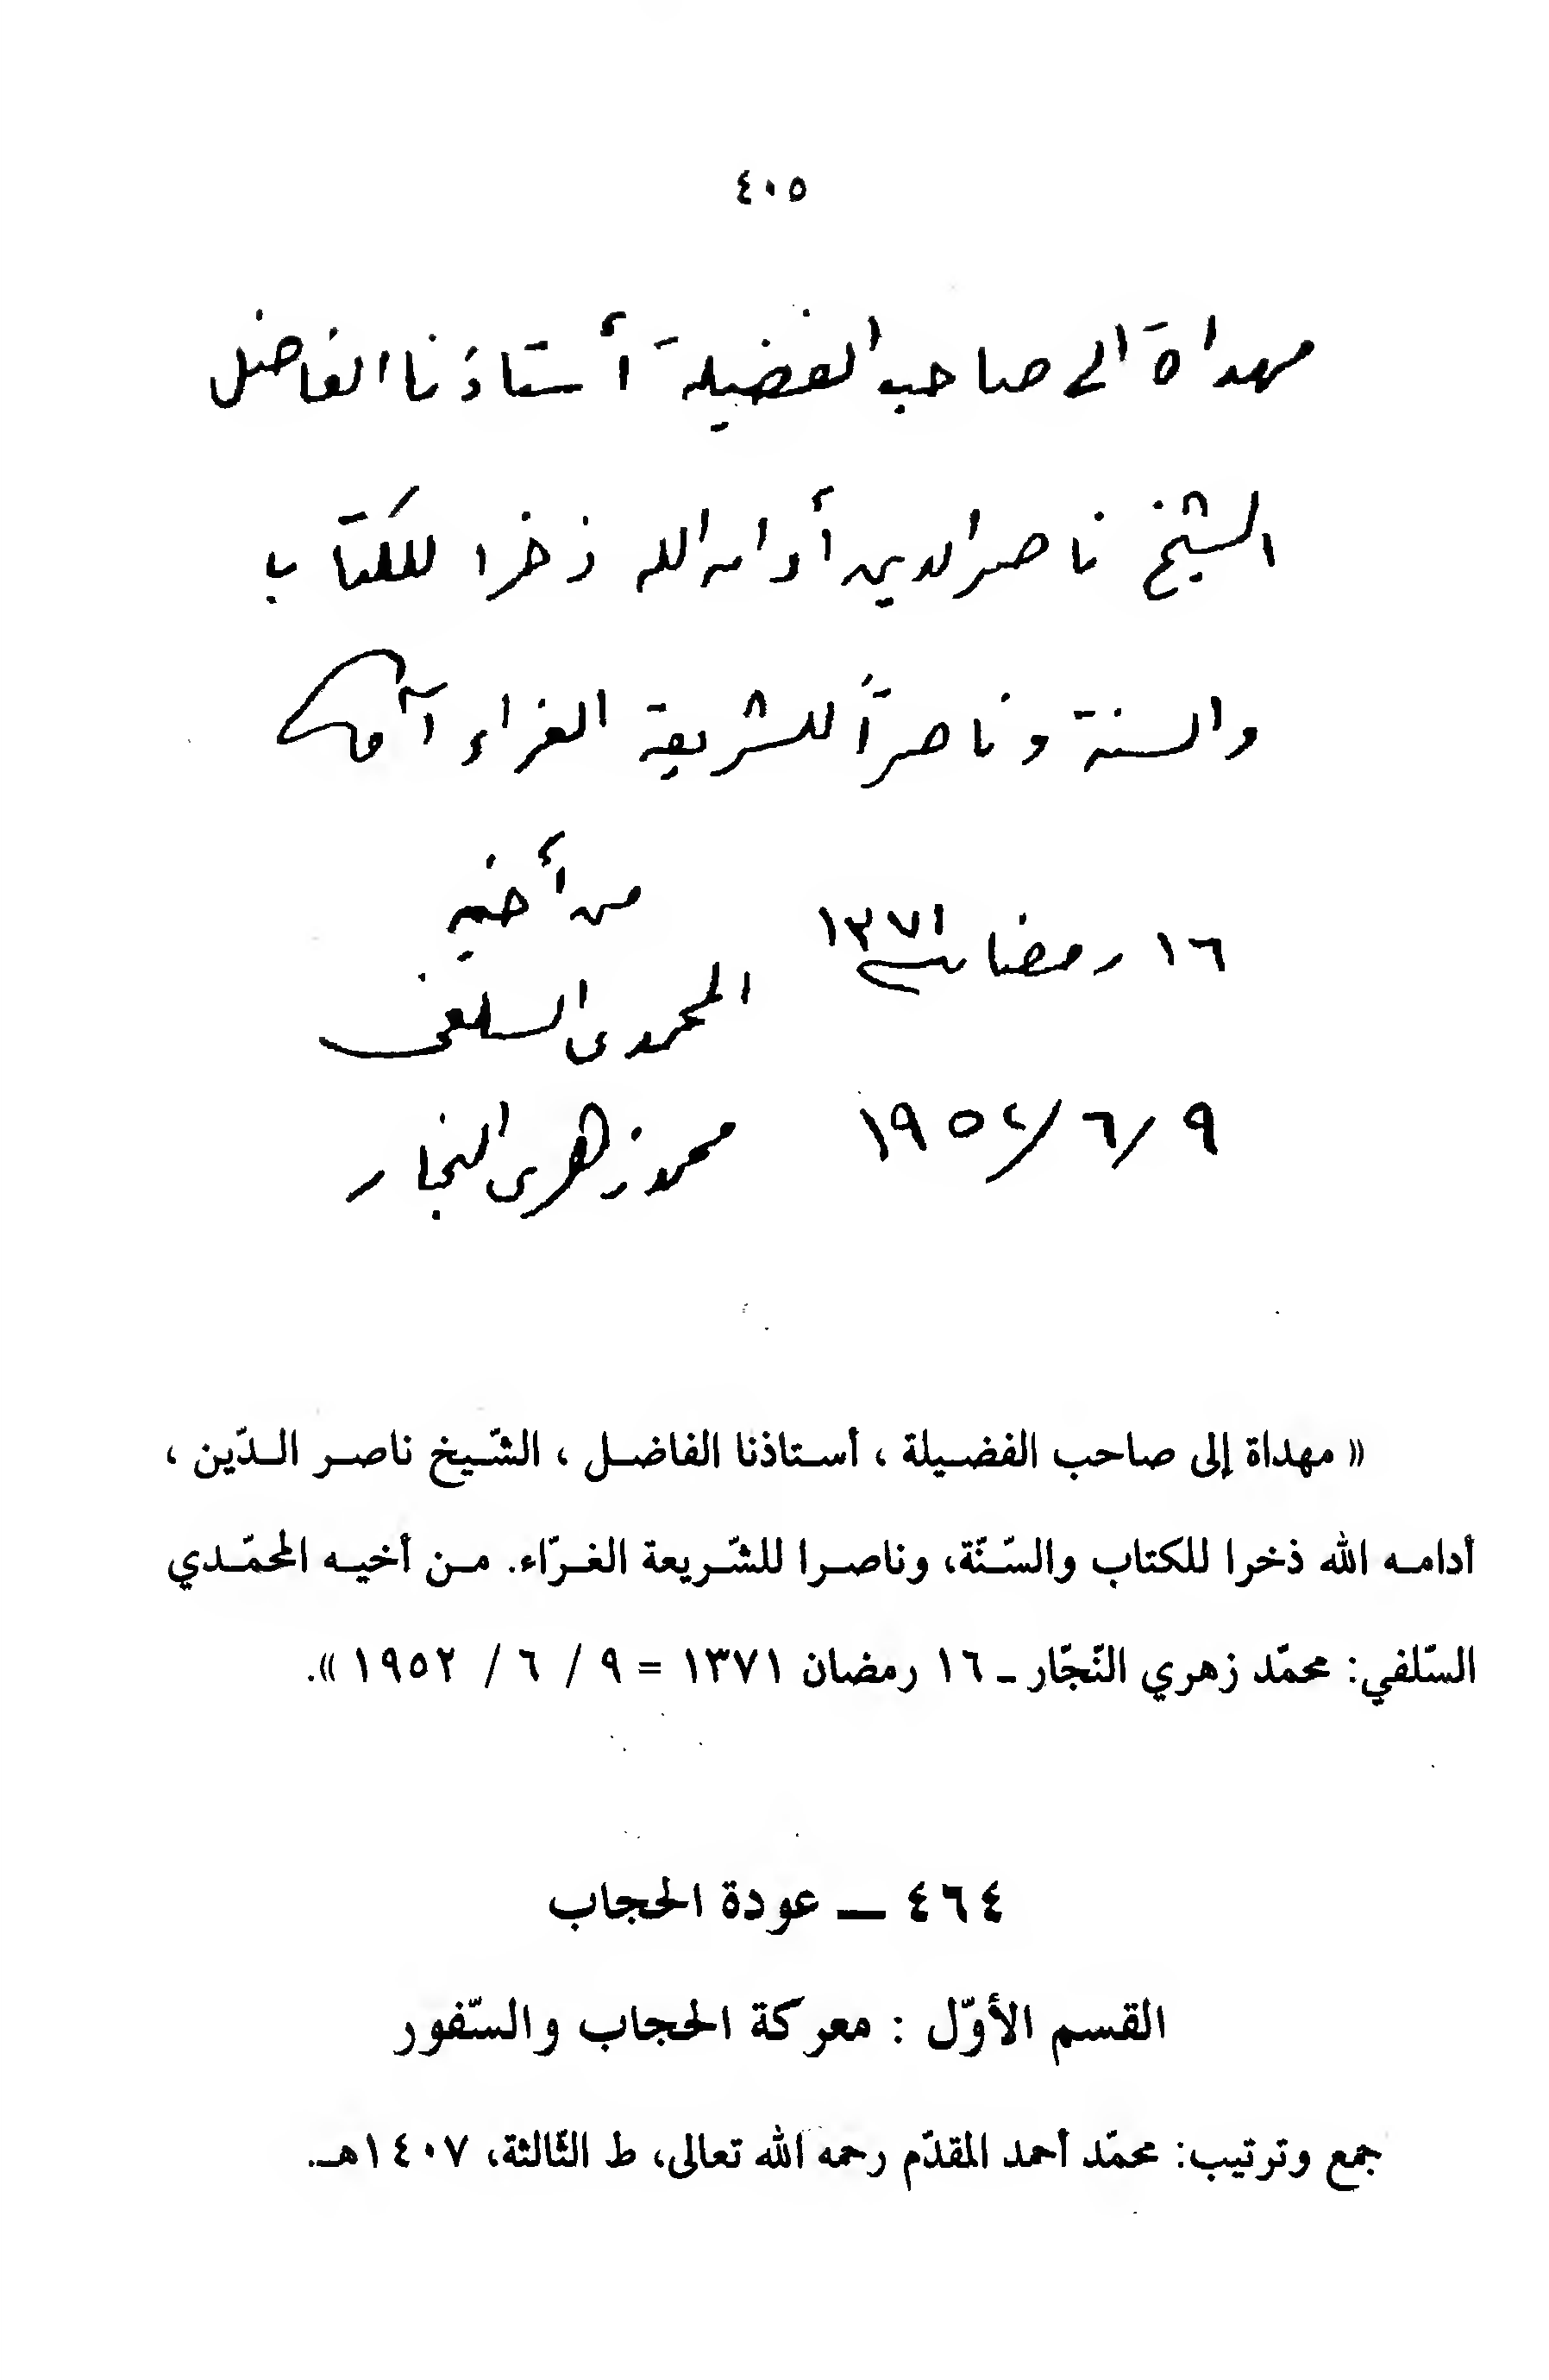 ٤٠٥
مهداة الى صاحب الفضيلة أستاذنا الفاضل
الشيخ ناصر الدين أدامه الله ذخرا للكتاب
والسنة وناصراً للشريعة الغراء آمين
من أخيه
١٦ رمضان ١٣٧١
المحمدى السلفى
٩/٦/١٩٥٢ محمد زهرى النجار
« مهداة إلى صاحب الفضيلة ، أستاذنا الفاضل ، الشّيخ ناصر الدّين ،
أدامه الله ذخرا للكتاب والسّنّة، وناصرا للشّريعة الغرّاء. من أخيه المحمّدي
السّلفي: محمّد زهري النّجّار ـ ١٦ رمضان ١٣٧١ = ٩ / ٦ / ١٩٥٢ ».
٤٦٤ ــ عودة الحجاب
القسم الأوّل : معركة الحجاب والسّفور
جمع وترتيب: محمّد أحمد المقدّم رحمه الله تعالى، ط الثّالثة، ١٤٠٧هـ.